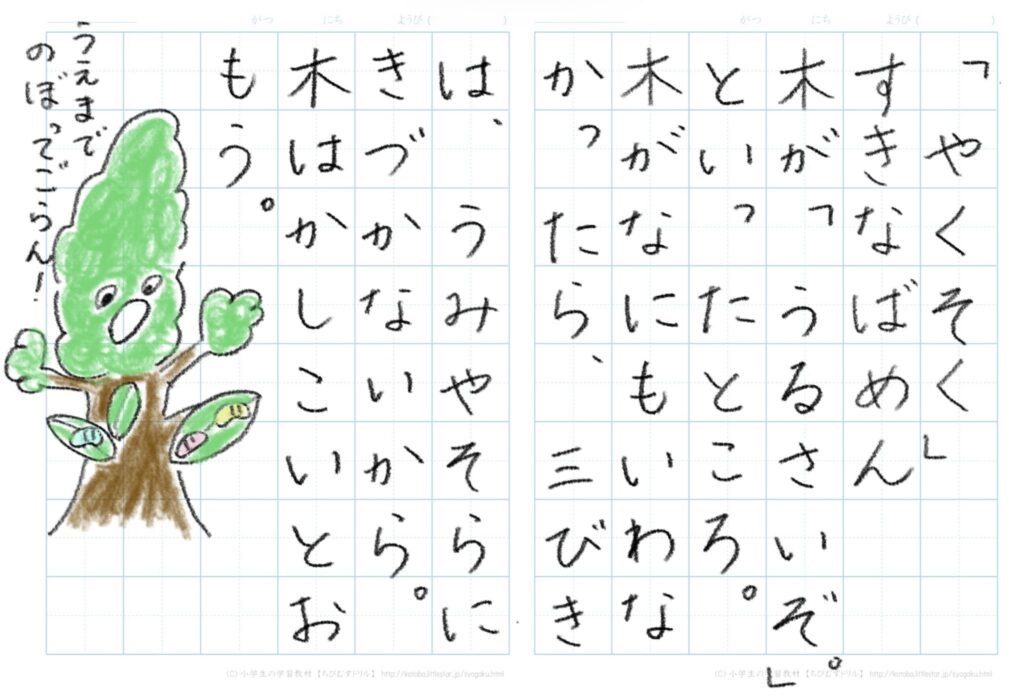 がつ にち ようび ( )
「やくそく」
すきなばめん
木が「うるさいぞ。」
といったところ。
木がなにもいわな
かったから、三びき
(C) 小学生の学習教材【ちびむすドリル】 http://kotoba.littlestar.jp/syogaku.html
がつ にち ようび ( )
は、うみやそらに
きづかないから。
木はかしこいとお
もう。
うえまで
のぼってごらん!
(C) 小学生の学習教材【ちびむすドリル】 http://kotoba.littlestar.jp/syogaku.html